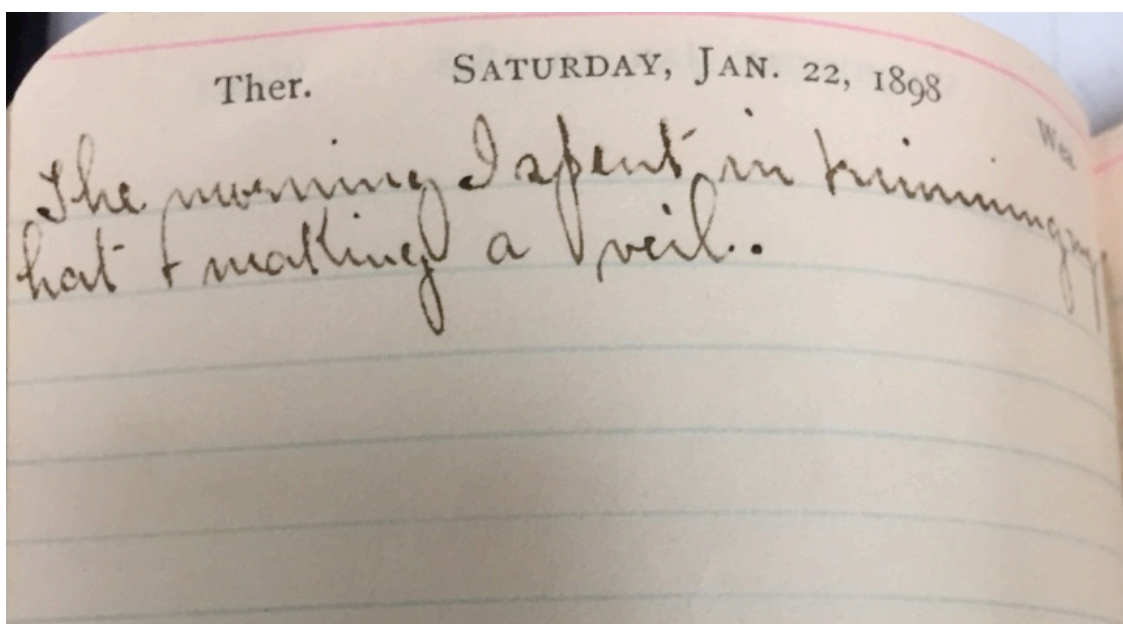 Ther. SATURDAY, JAN. 22, 1898 Wea.
The morning I spent in trimming my
hat & making a veil..